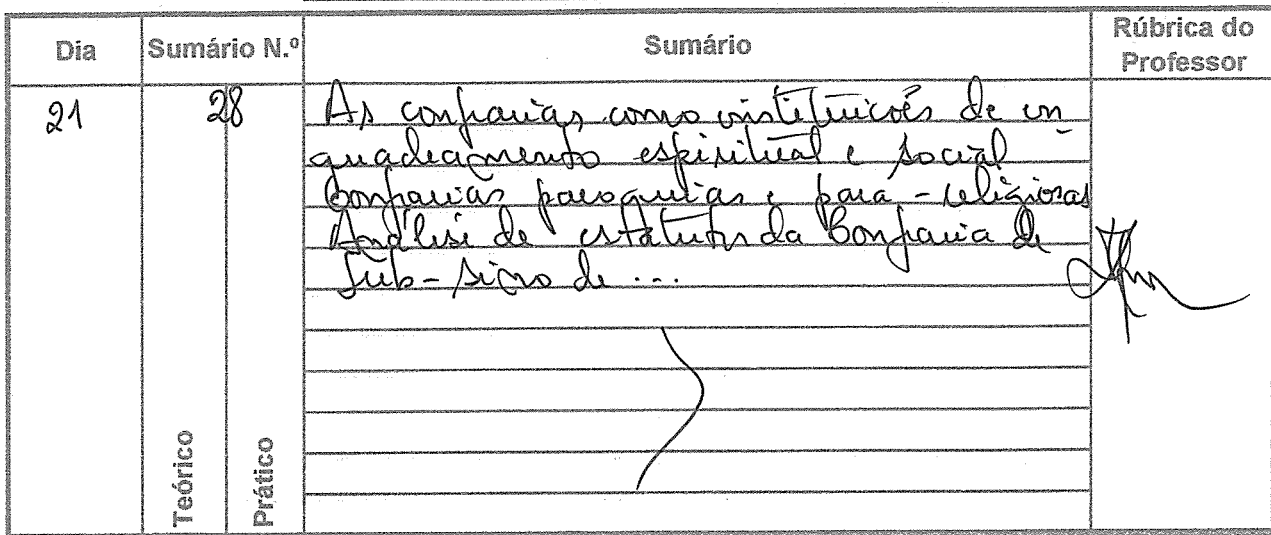 Dia
Sumário N.º
Sumário
Rúbrica do
Professor
21
28
As confrarias como instituições de en
quadramento espiritual e social
Confrarias paroquias e para-religiosas
Análise de estatutos da Confraria de
Sub-Sino de ...
Teórico
Prático